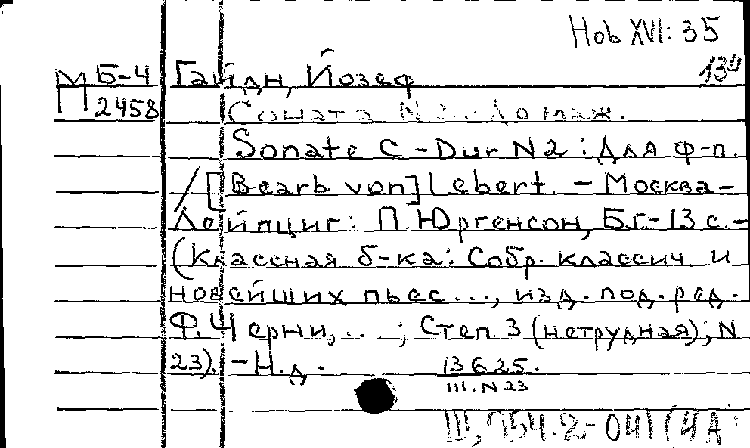 Hob XVI: 35
13
М Б-4 Гайдн, Йозеф
2458 Соната N 2 До маж.
Sonate C-Dur N2 : Для ф-п.
/ [Bearb von] Lebert. - Москва -
Лейпциг: П. Юргенсон, Б.г. - 13 с. -
(Классная б-ка: Собр. классич. и
новейших пьес ..., изд. под. ред.
Ф. Черни, ... ; Степ 3 (нетрудная); N
23). - Н.д.
13625.
III. N 23